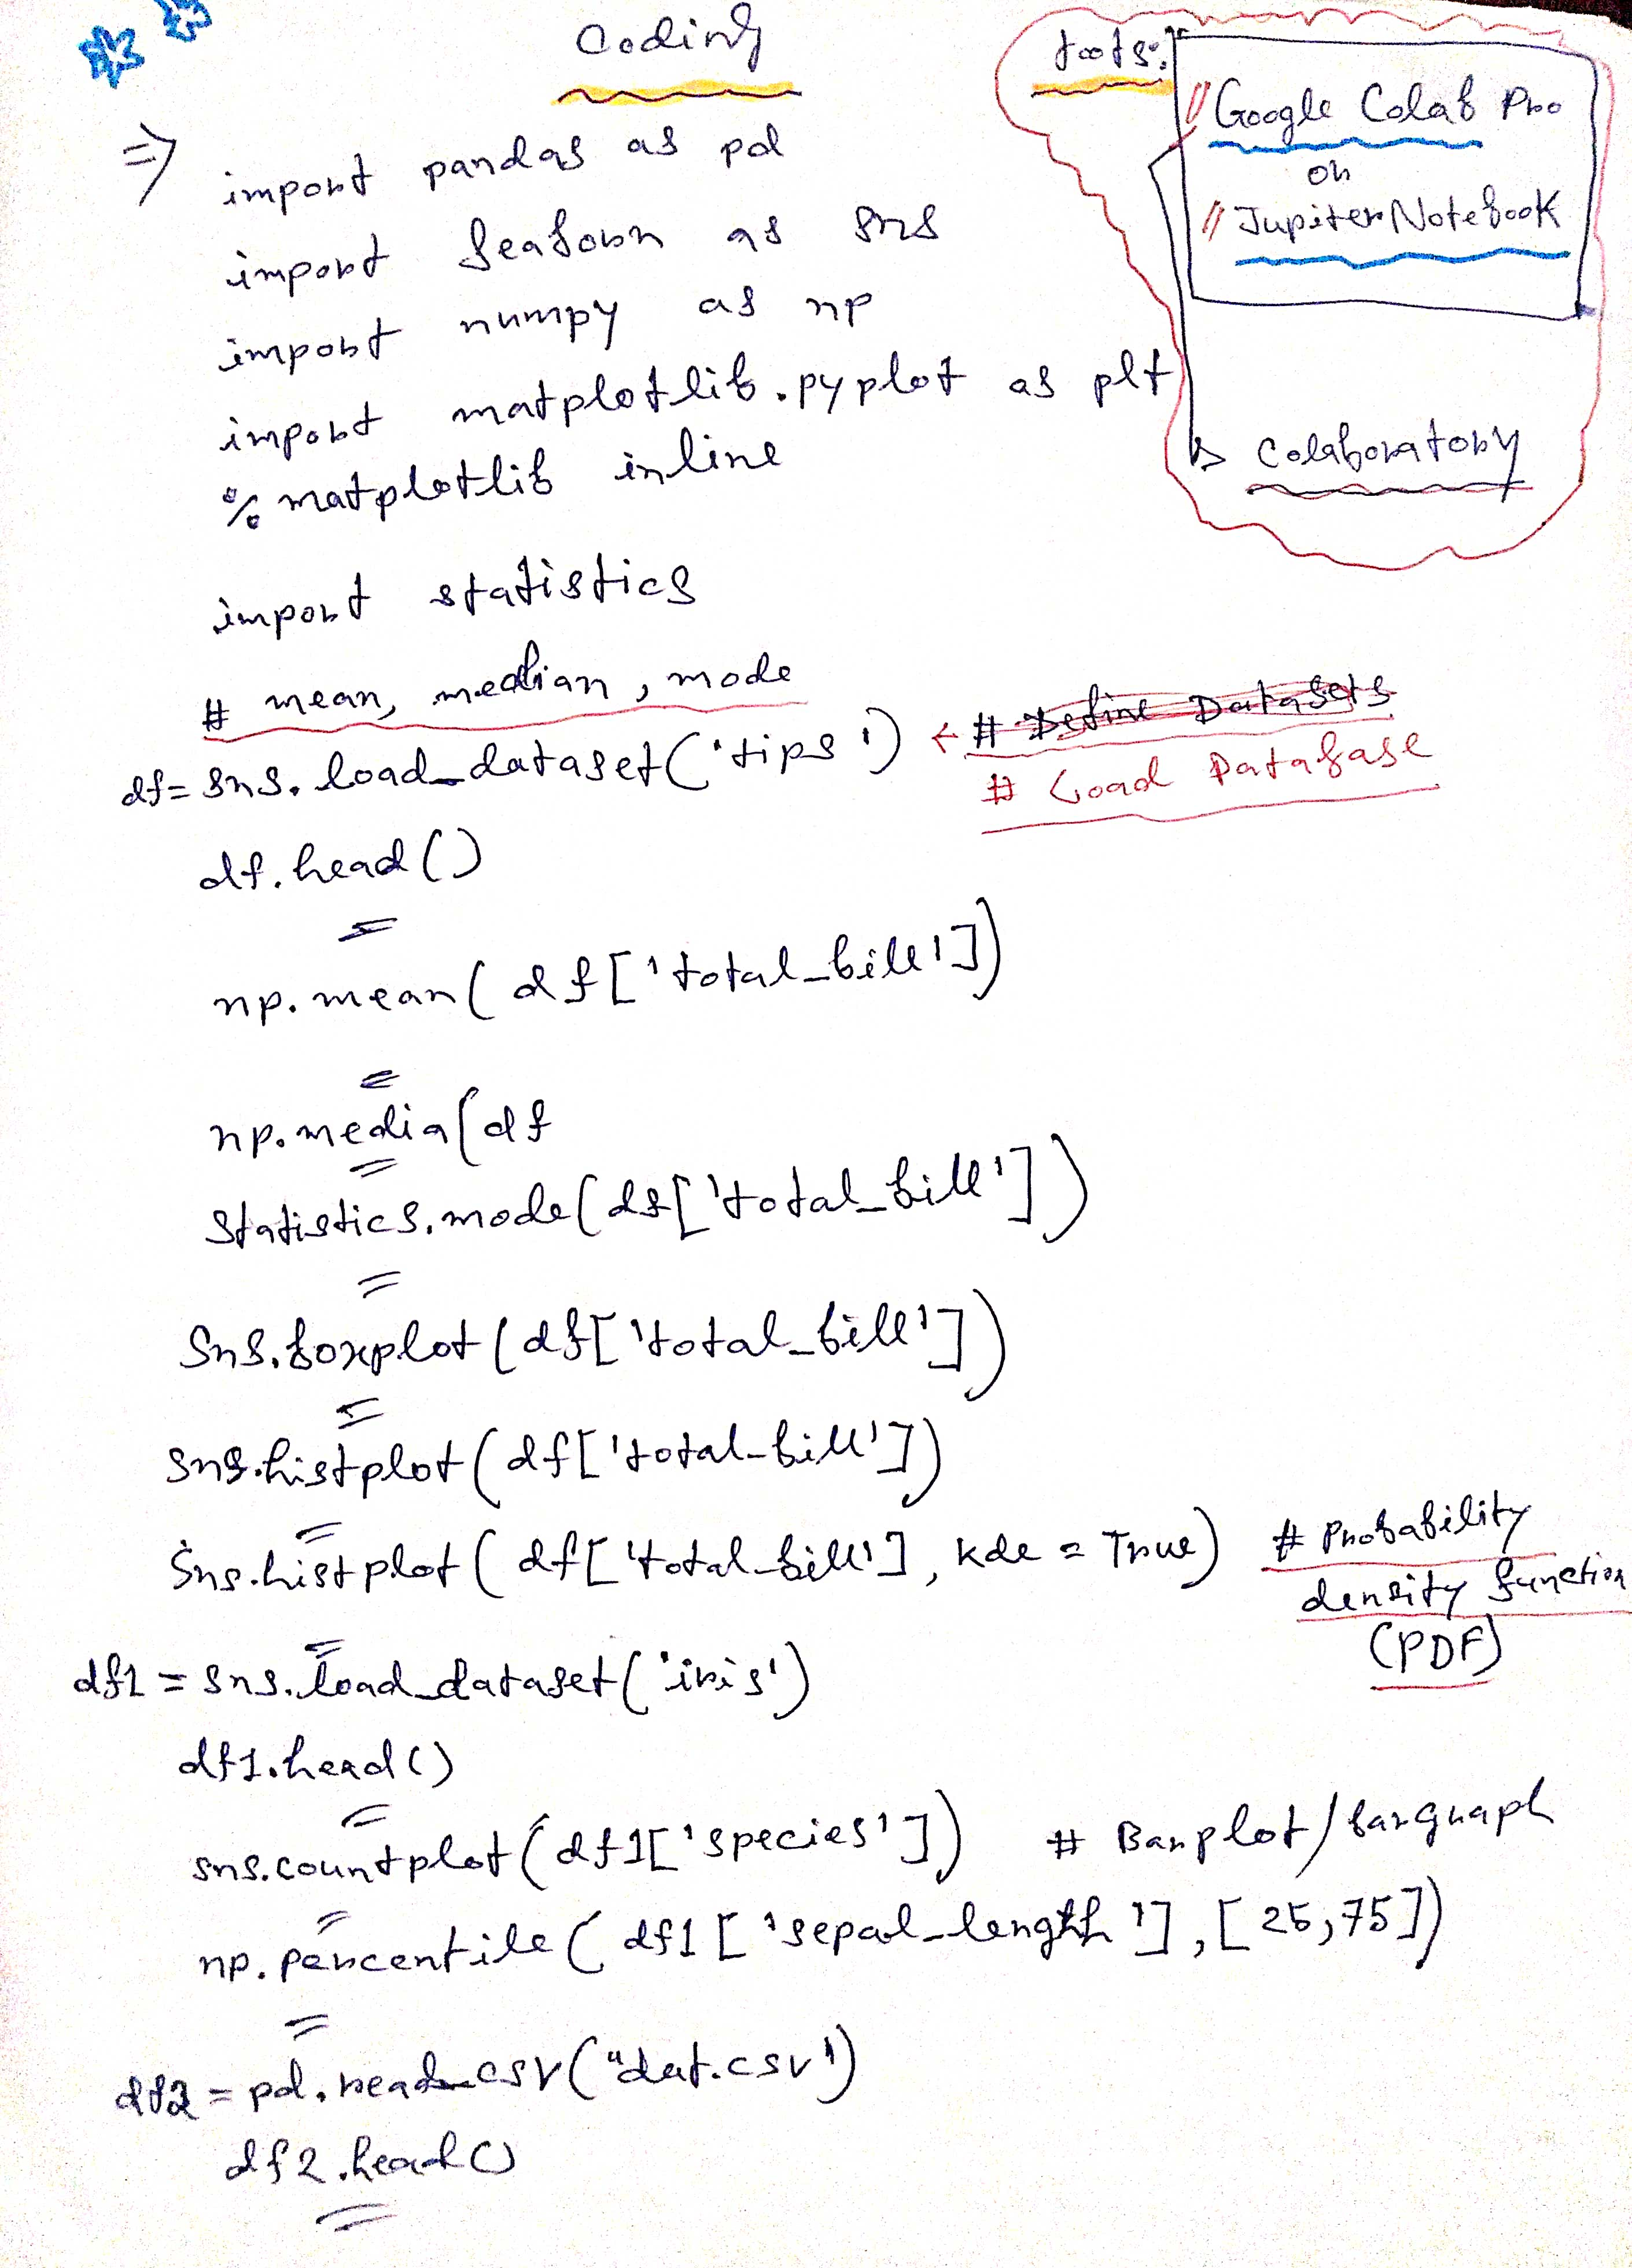 Coding
tools:
// Google Colab Pro
or
// Jupiter Notebook
Colaboratory
=> import pandas as pd
import seaborn as sns
import numpy as np
import matplotlib.pyplot as plt
% matplotlib inline
import statistics
# mean, median, mode
df = sns.load_dataset('tips') ← # Define Datasets
# Load Database
df.head()
np.mean(df['total_bill'])
np.media(df
statistics.mode(df['total_bill'])
sns.boxplot(df['total_bill'])
sns.histplot(df['total_bill'])
sns.histplot(df['total_bill'], kde = True) # Probability
density function
(PDF)
df1 = sns.load_dataset('iris')
df1.head()
sns.countplot(df1['species']) # Barplot/bargraph
np.percentile(df1['sepal_length'], [25,75])
df2 = pd.read_csv("dat.csv')
df2.head()